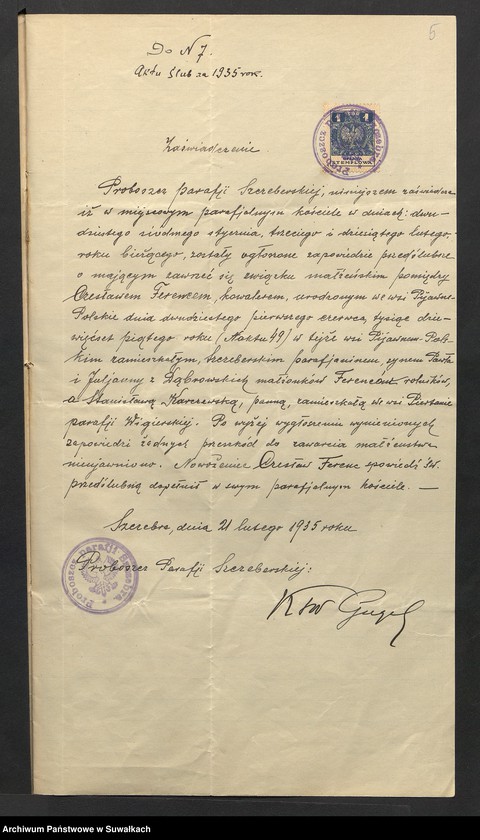 5
Do N 7.
Aktu ślub za 1935 rok.
1 1
OPŁATA
STEMPLOWA
Zaświadczenie
Proboszcz parafji Szczeberskiej, niniejszem zaświadcza
iż w miejscowym parafjalnym kościele w dniach: dwu-
dziestego siódmego stycznia, trzeciego i dziesiątego lutego,
roku bieżącego, zostały ogłoszone zapowiedzie przedślubne
o mającym zawrzeć się związku małżeńskim pomiędzy
Czesławem Ferencem, kawalerem, urodzonym we wsi Pijawne-
Polskie dnia dwudziestego pierwszego czerwca, tysiąc dzie-
więćset piątego roku (No aktu 49) w tejże wsi Pijawnem-Pol-
skim zamieszkałym, Szczeberskim parafjaninem, synem Pawła
i Juljanny z Dąbrowskich małżonków Ferenców rolników,
a Stanisławą Karczewską, panną, zamieszkałą we wsi Piertanie
parafji Wigierskiej. Po wyżej wygłoszeniu wymienionych
zapowiedzi żadnych przeszkód do zawarcia małżeństwa
nieujawniono. Nowożeniec Czesław Ferenc spowiedź św.
przedślubną dopełnił w swym parafjalnym kościele. —
Szczebra, dnia 21 lutego 1935 roku
Proboszcz Parafji Szczeberskiej:
Proboszcz parafii Szczebra
Archiwum Państwowe w Suwałkach